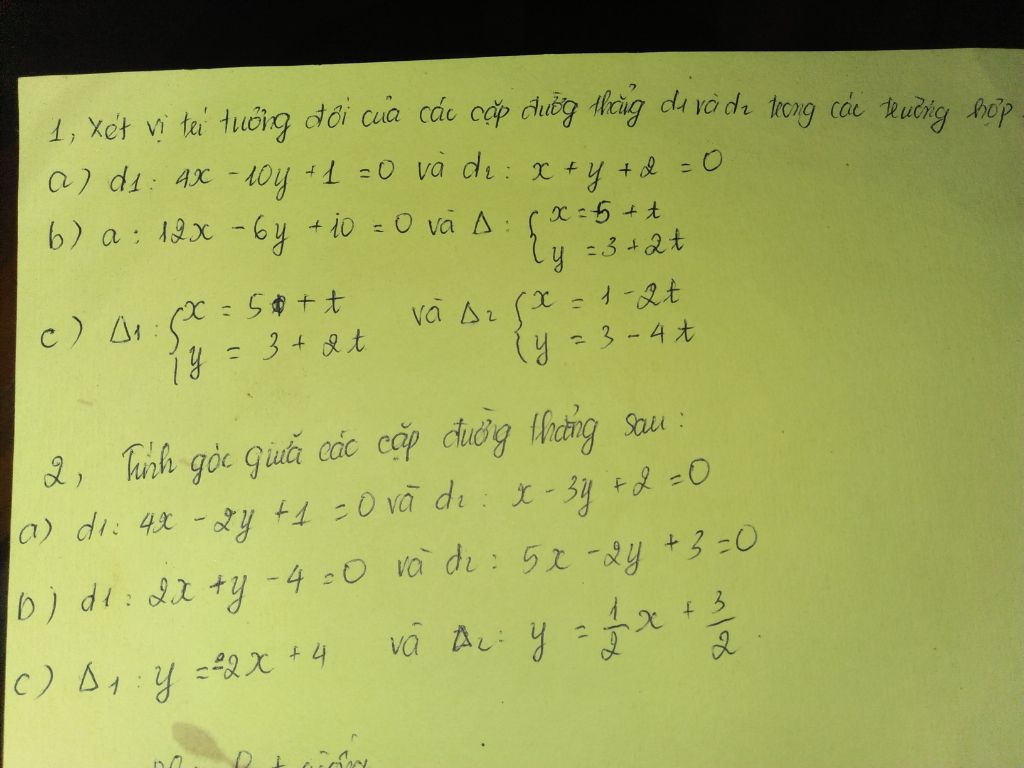 1, Xét vị trí tương đối của các cặp đường thẳng d1 và d2 trong các trường hợp:
a) d1: 4x - 10y + 1 = 0 và d2: x + y + 2 = 0
b) a: 12x - 6y + 10 = 0 và Δ: { x = 5 + t
y = 3 + 2t
c) Δ1: { x = 5 + t và Δ2 { x = 1 - 2t
y = 3 + 2t y = 3 - 4t
2, Tính góc giữa các cặp đường thẳng sau:
a) d1: 4x - 2y + 1 = 0 và d2: x - 3y + 2 = 0
b) d1: 2x + y - 4 = 0 và d2: 5x - 2y + 3 = 0
c) Δ1: y = -2x + 4 và Δ2: y = 1/2 x + 3/2